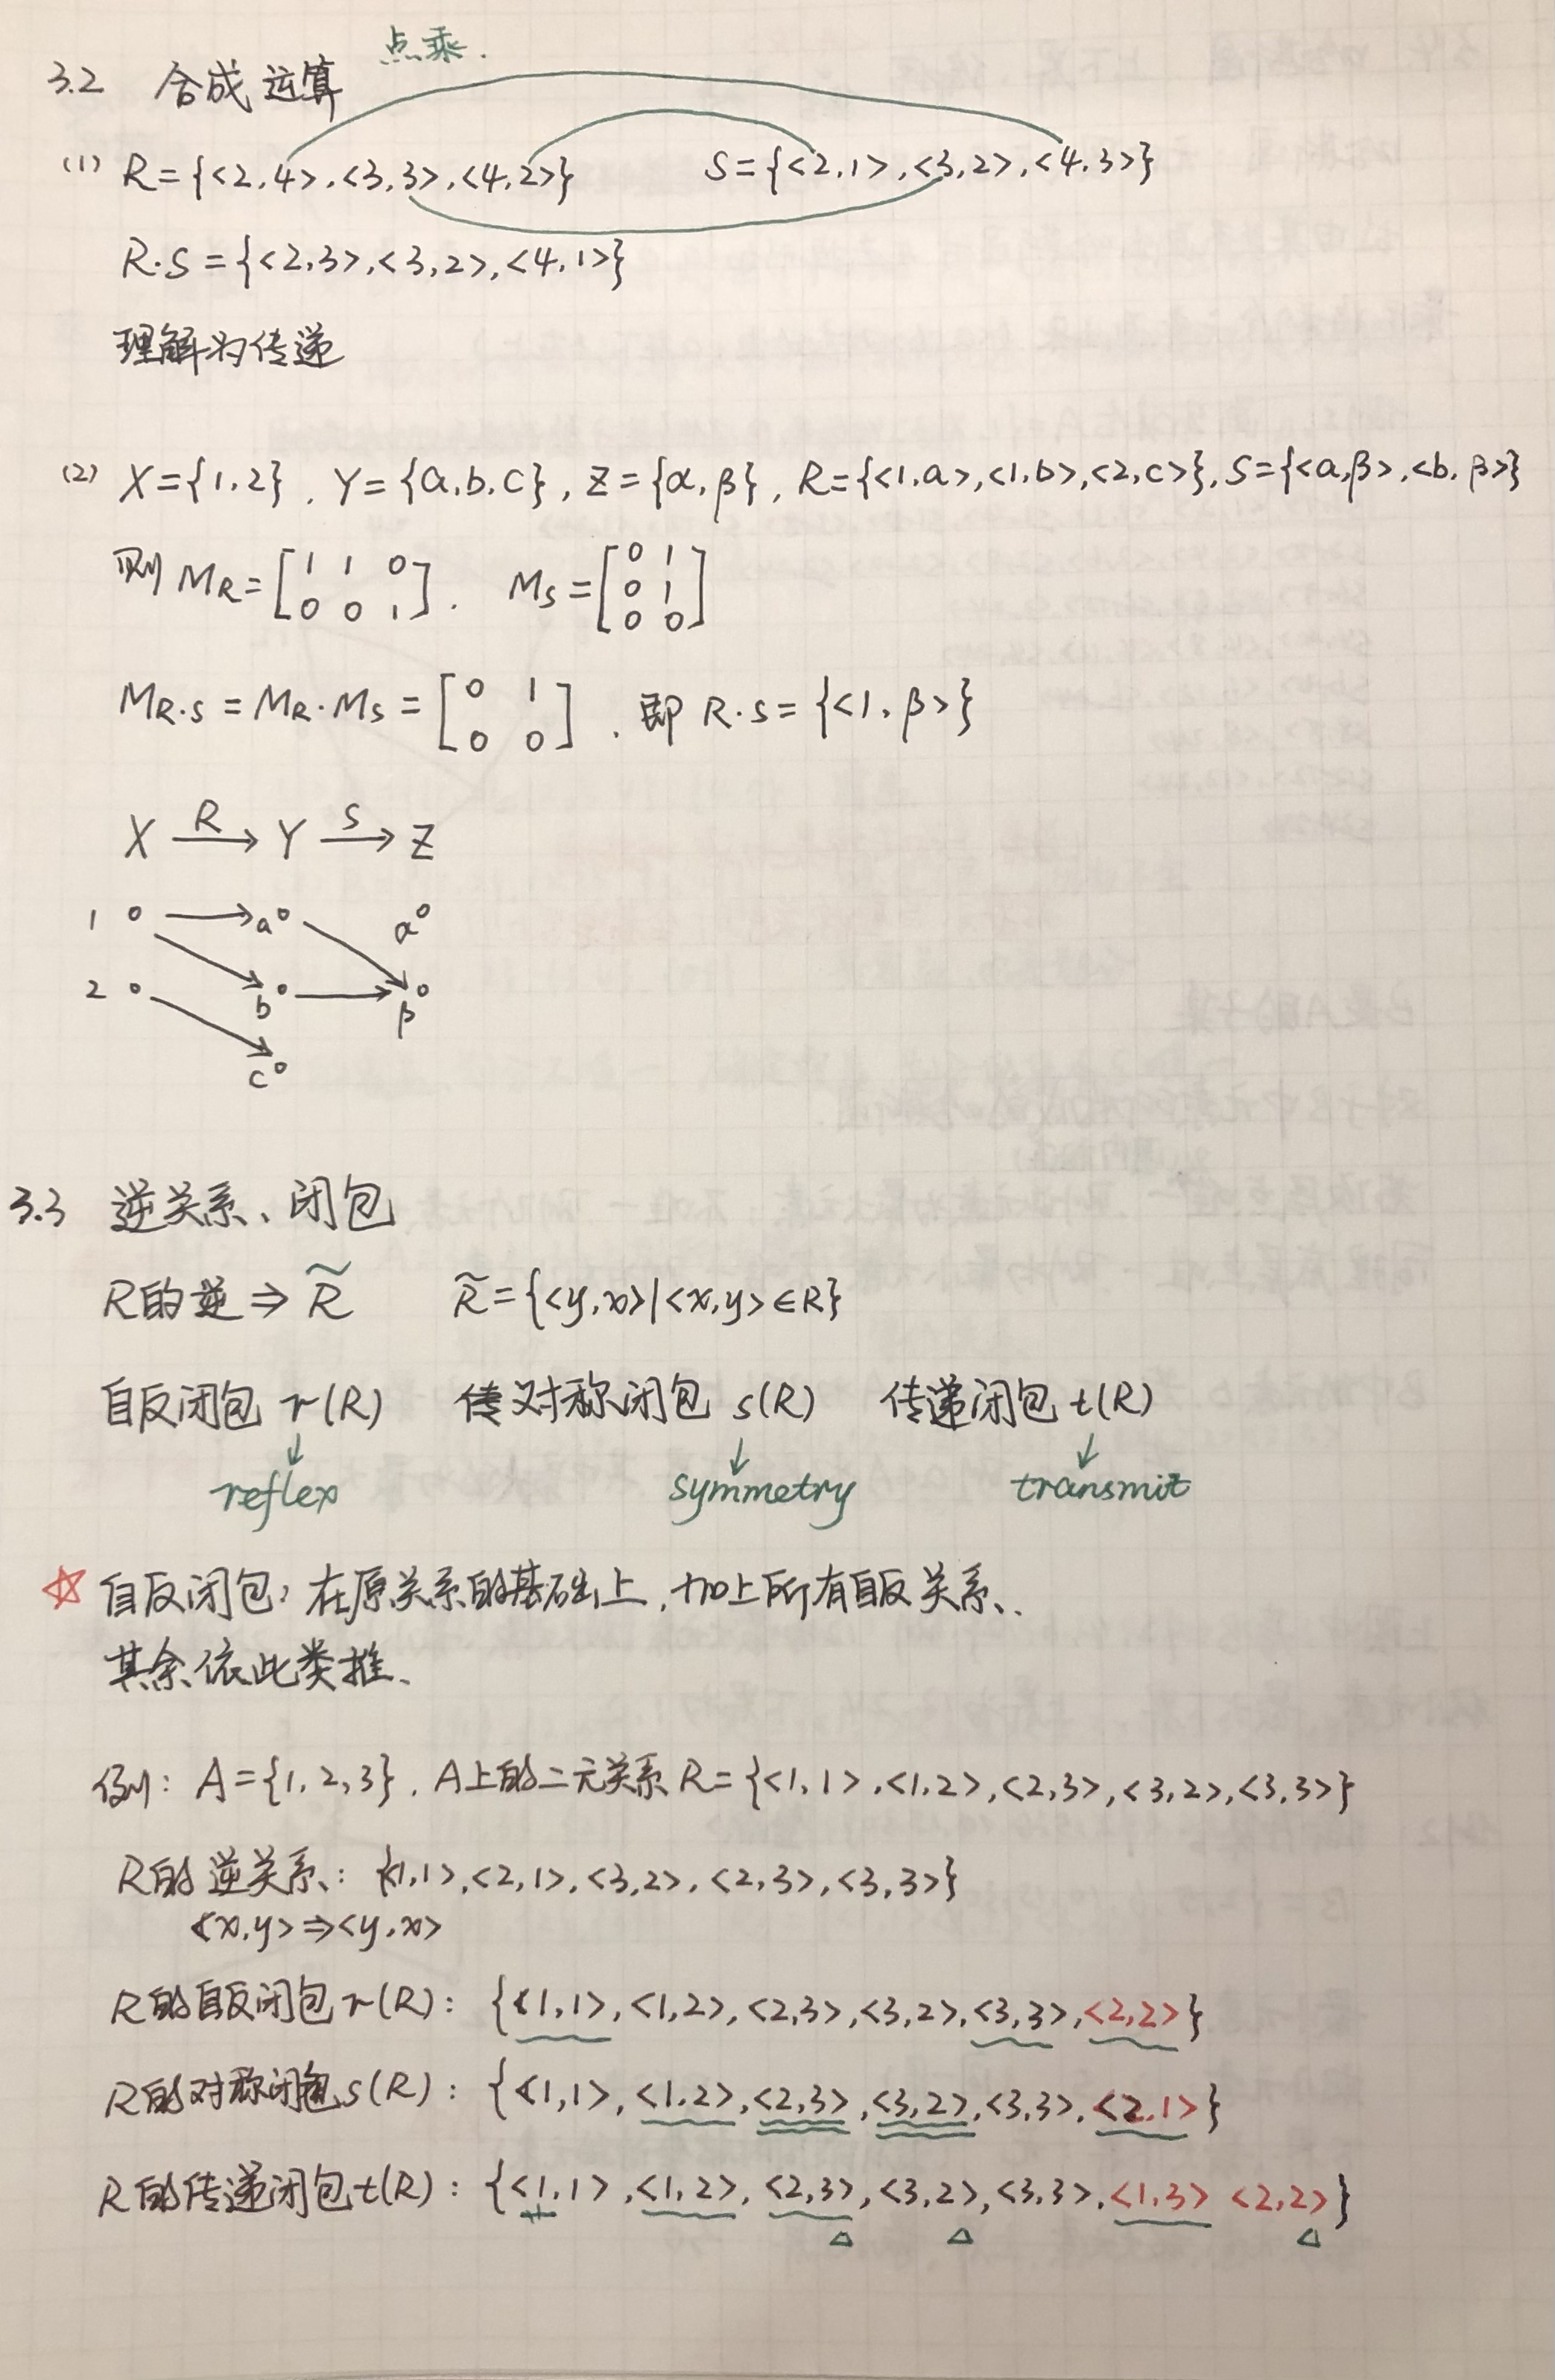 点乘.
3.2 合成运算
(1) R={<2,4>,<3,3>,<4,2>} S={<2,1>,<3,2>,<4,3>}
R·S={<2,3>,<3,2>,<4,1>}
理解为传递
(2) X={1,2}, Y={a,b,c}, Z={α,β}, R={<1,a>,<1,b>,<2,c>}, S={<a,β>,<b,β>}
则 M_R=[1 1 0; 0 0 1]. M_S=[0 1; 0 1; 0 0]
M_R·S = M_R·M_S = [0 1; 0 0]. 即 R·S={<1,β>}
X R→ Y S→ Z
1 a α
2 b β
c
3.3 逆关系、闭包
R的逆⇒R̃ R̃={<y,x>|<x,y>∈R}
自反闭包 r(R) 对称闭包 s(R) 传递闭包 t(R)
↓ ↓ ↓
reflex symmetry transmit
☆ 自反闭包:在原关系的基础上,加上所有自反关系、
其余依此类推、
例: A={1,2,3}, A上的二元关系 R={<1,1>,<1,2>,<2,3>,<3,2>,<3,3>}
R的逆关系: {<1,1>,<2,1>,<3,2>,<2,3>,<3,3>}
<x,y>⇒<y,x>
R的自反闭包 r(R): {<1,1>,<1,2>,<2,3>,<3,2>,<3,3>,<2,2>}
R的对称闭包 s(R): {<1,1>,<1,2>,<2,3>,<3,2>,<3,3>,<2,1>}
R的传递闭包 t(R): {<1,1>,<1,2>,<2,3>,<3,2>,<3,3>,<1,3> <2,2>}